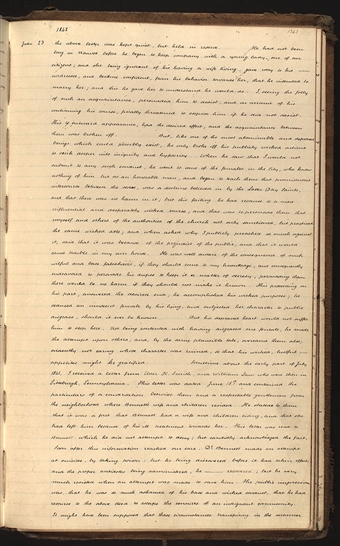 1842
1243
June 23 the above letter was kept quiet, but held in reserve. He had not been
long in Nauvoo before he began to keep company with a young lady, one of our
citizens; and she being ignorant of his having a wife living, gave way to his
addresses, and became confident, from his behavior towards her, that he intended to
marry her; and this he gave her to understand he would do. I, seeing the folly
of such an acquaintance, persuaded him to desist; and, on account of his
continuing his course, finally threatened to expose him if he did not desist.
This, to outward appearance, had the desired effect, and the acquaintance between
them was broken off. But, like one of the most abominable and depraved
beings which could possibly exist, he only broke off his publicly wicked actions,
to sink deeper into iniquity and hypocrisy. When he saw that I would not
submit to any such conduct, he went to some of the females in the city, who knew
nothing of him but as an honorable man, and began to teach them that promiscuous
intercourse between the sexes, was a doctrine believed in by the Latter Day Saints,
and that there was no harm in it; but this failing, he had recourse to a more
influential and desperately wicked course; and that was to persuade them that
myself and others of the authorities of the church not only sanctioned, but practised
the same wicked acts; and when asked why I publicly preached so much against
it, said that it was because of the prejudice of the public, and that it would
cause trouble in my own house. He was well aware of the consequence of such
wilful and base falsehoods, if they should come to my knowledge; and consequently
endeavored to persuade his dupes to keep it a matter of secrecy, persuading them
there would be no harm if they should not make it known. This proceeding on
his part, answered the desired end; he accomplished his wicked purposes; he
seduced an innocent female by his lying, and subjected her character to public
disgrace, should it ever be known. But his depraved heart would not suffer
him to stop here. Not being contented with having disgraced one female, he made
the attempt upon others; and, by the same plausible tale, overcame them also;
evidently not caring whose character was ruined, so that his wicked, lustful
appetites might be gratified. Sometime about the early part of July
1841, I received a letter from Elder H. Smith, and William Law who was then in
Pittsburgh, Pennsylvania. This letter was dated June 15th and contained the
particulars of a conversation betwixt them and a respectable gentleman from
the neighborhood where Bennett's wife and children resided. He stated to them
that it was a fact that Bennett had a wife and children living, and that she
had left him because of his ill treatment towards her. This letter was read to
Bennett, which he did not attempt to deny; but candidly acknowledged the fact.
Soon after this information reached our ears, Dr. Bennett made an attempt
at suicide, by taking poison; but he being discovered before it had taken effect,
and the proper antidotes being administered, he recovered; but he very
much resisted when an attempt was made to save him. The public impression
was, that he was so much ashamed of his base and wicked conduct, that he had
recourse to the above deed to escape the censures of an indignant community.
It might have been supposed that these circumstances transpiring in the manner